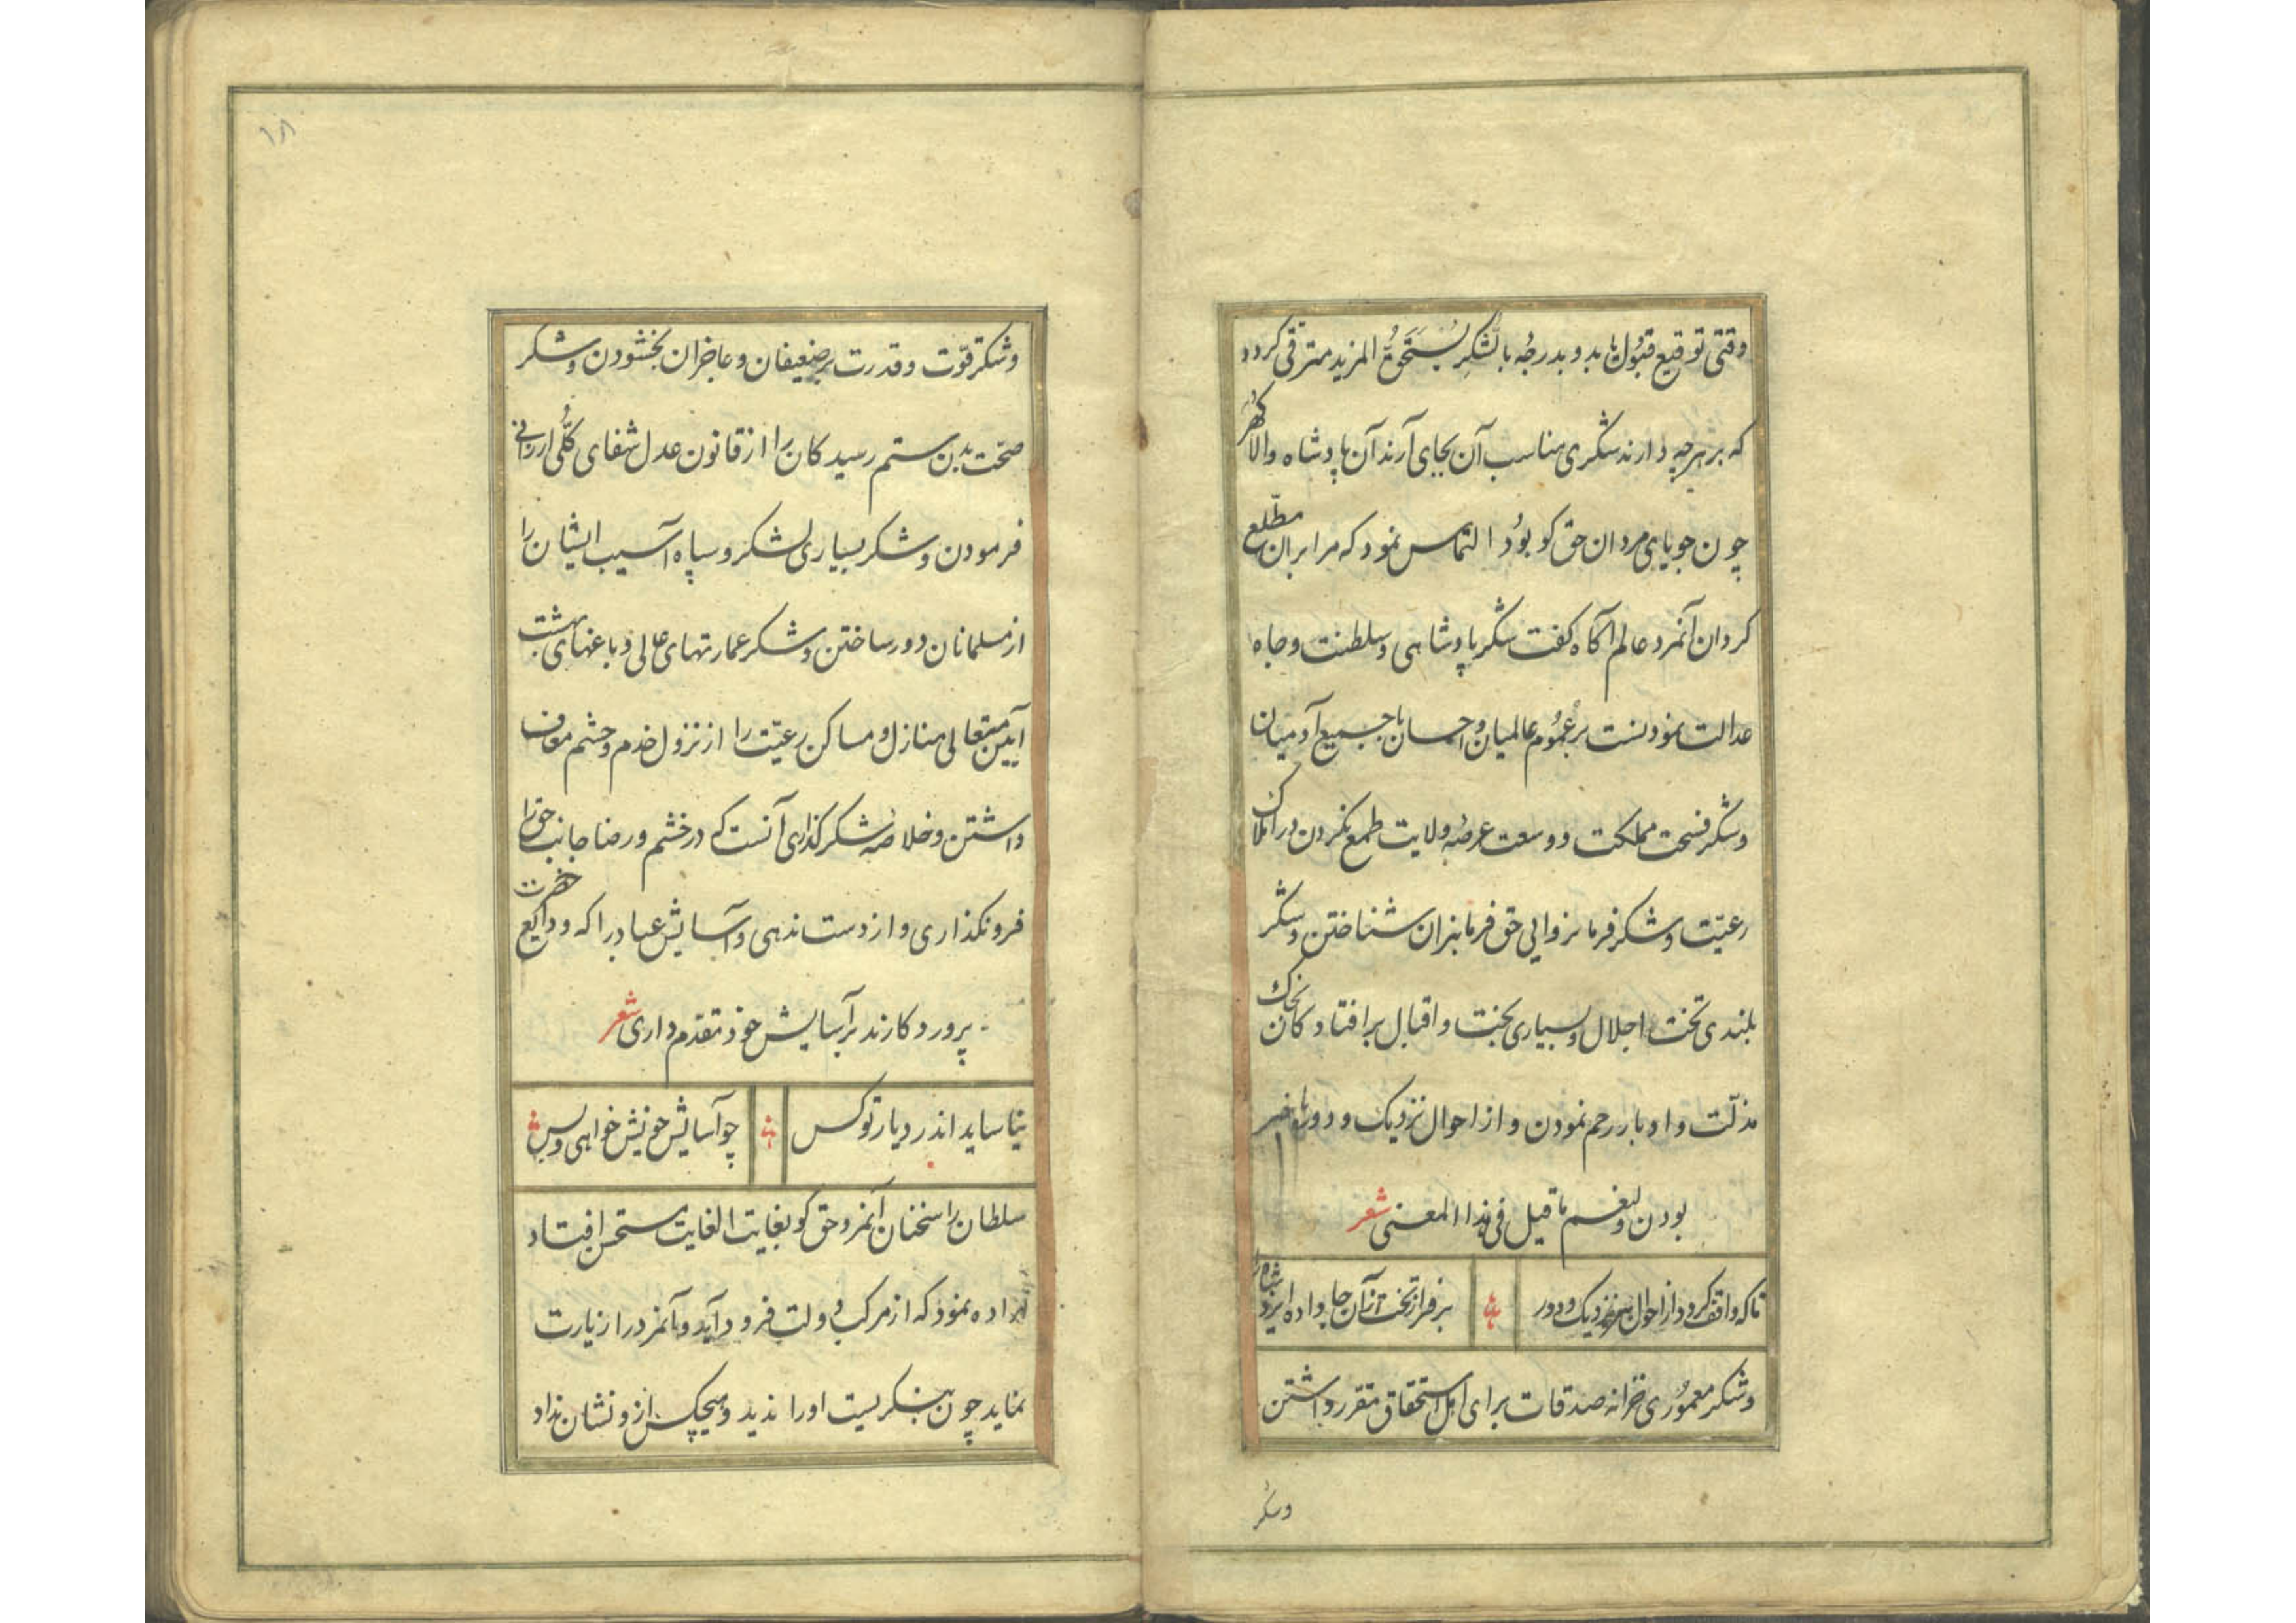 وقتی توقیع قبول یابد و بدرجه بالشکر یستحق المزید مترقی کردد
که بر هرچه دارند شکری مناسب آن بجای آرند آن پادشاه والاکهر
چون جویای مردان حق کو بود التماس نمود که مرا بران مطلع
کردان آنمرد عالم آکاه کفت شکر پادشاهی و سلطنت و جاه
عدالت نمودنست بر عموم عالمیان و احسان با جمیع آدمیان
و شکر فسحت مملکت و وسعت عرصه ولایت طمع نکردن در املاک
رعیت و شکر فرمانروایی حق فرمانبران شناختن و شکر
بلندی تخت اجلال و بسیاری بخت و اقبال بر افتادکان خاک
مذلت و ادبار رحم نمودن و از احوال نزدیک و دور باخبر
بودن و لنعم ما قیل فی هذا المعنی شعر
تا که واقف کردد از احوال هر نزدیک و دور بر فراز تخت ازآن جا داده ایزد شاه را
و شکر معموری خزانه صدقات برای اهل استحقاق مقرر داشتن
وشکر
۱۸
و شکر قوت و قدرت بر ضعیفان و عاجزان بخشودن و شکر
صحت بدن ستم رسیدکان را از قانون عدل شفای کلی ارزانی
فرمودن و شکر بسیاری لشکر و سپاه آسیب ایشان را
از مسلمانان دور ساختن و شکر عمارتهای عالی و باغهای بهشت
آیین متعالی منازل و مساکن رعیت را از نزول خدم و حشم معاف
داشتن و خلاصه شکر کذاری آنست که در خشم و رضا جانب حق را
فرو نکذاری و از دست ندهی و آسایش عباد را که ودایع حضرت
پروردکارند بر آسایش خود مقدم داری شعر
نیاساید اندر دیار تو کس چو آسایش خویش خواهی و بس
سلطان را سخنان آنمرد حق کو بغایت الغایت مستحسن افتاد
اراده نمود که از مرکب دولت فرود آید و آنمرد را زیارت
نماید چون بنکریست او را ندید و هیچکس ازو نشان نداد